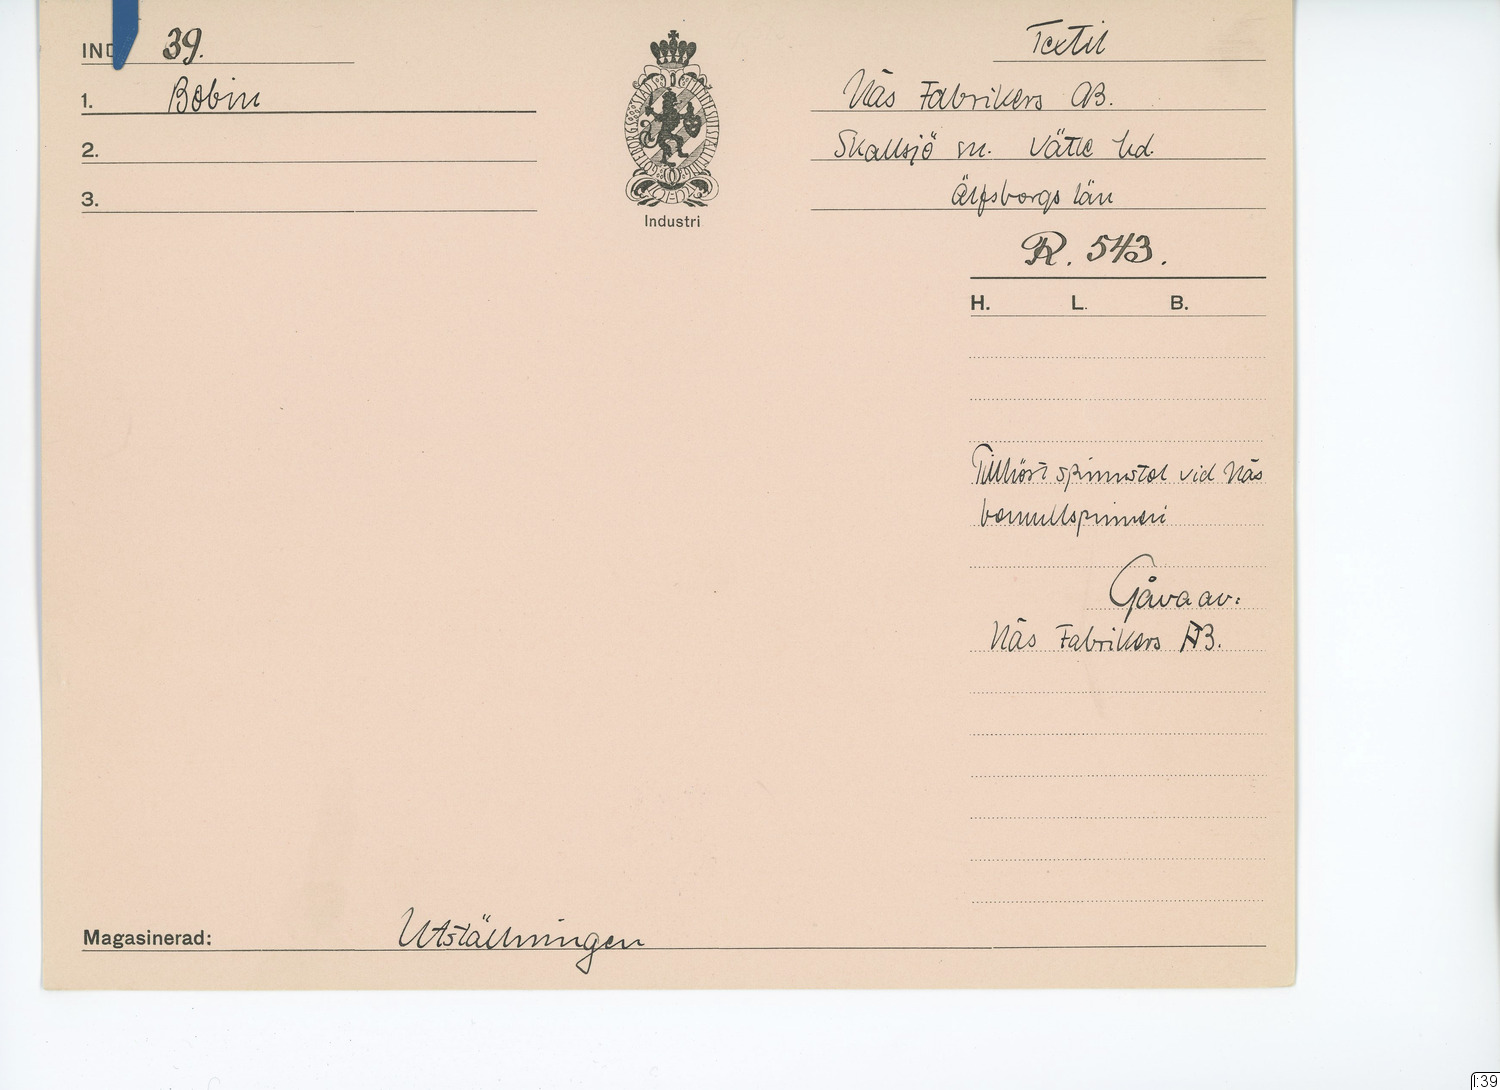 IND 39.
1. Bobin
2.
3.
GÖTEBORGS STADS MINNESUTSTÄLLNING
Industri
Textil
Näs Fabrikers AB.
Skallsjö sn. Vätle hd.
Älfsborgs län
R. 543.
H. L. B.
Tillhört spinnstol vid Näs
bomullspinneri
Gåva av:
Näs Fabrikers AB.
Magasinerad: Utställningen
I:39